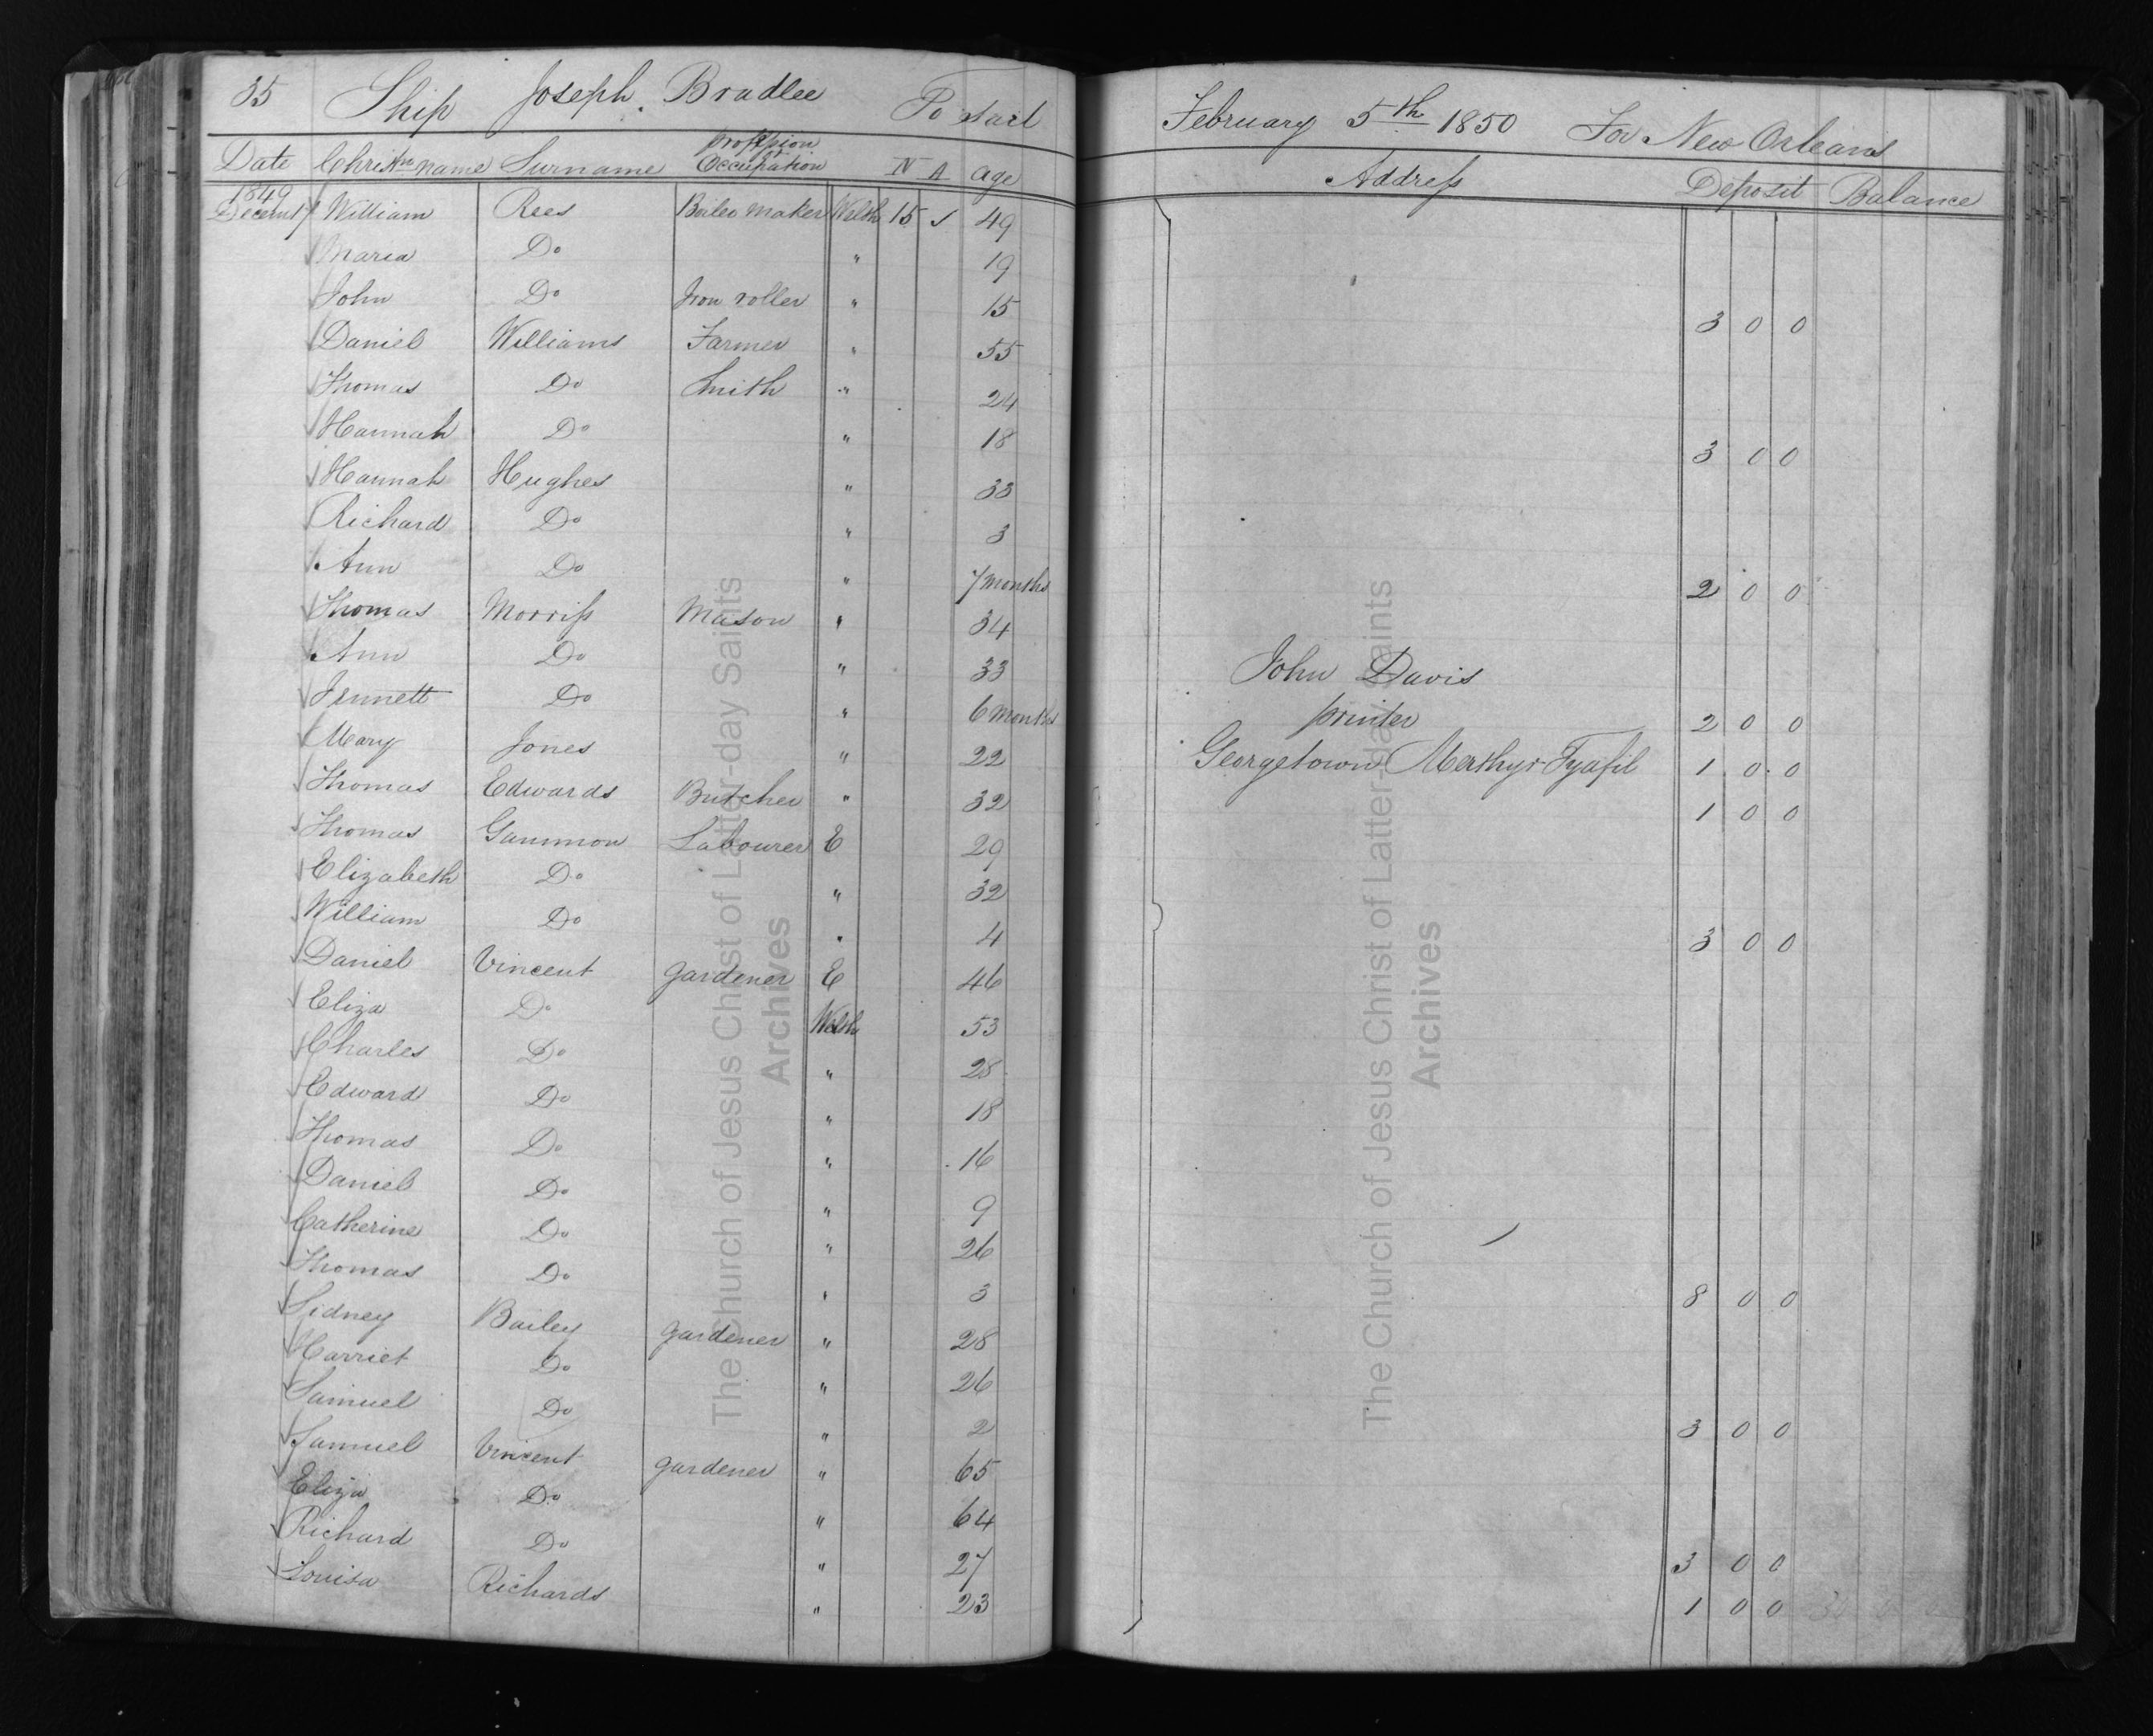 35 Ship Joseph Bradlee To Sail February 5th 1850 For New Orleans
Date Christn name Surname Profession or Occupation N A Age Address Deposit Balance
1849
Decemr 7 William Rees Boiler maker Welsh 15 49
Maria Do " 19
John Do Iron roller " 15 3 0 0
Daniel Williams Farmer " 55
Thomas Do Smith " 24
Hannah Do " 18 3 0 0
Hannah Hughes " 33
Richard Do " 3
Ann Do " 7 months 2 0 0
Thomas Morriss Mason " 34
Ann Do " 33 John Davis
Jennett Do " 6 months printer 2 0 0
Mary Jones " 22 Georgetown Merthyr Tydfil 1 0 0
Thomas Edwards Butcher " 32 1 0 0
Thomas Gammon Labourer E 29
Elizabeth Do " 32
William Do " 4 3 0 0
Daniel Vincent gardener E 46
Eliza Do Welsh 53
Charles Do " 28
Edward Do " 18
Thomas Do " 16
Daniel Do " 9
Catherine Do " 26
Thomas Do " 3 8 0 0
Sidney Bailey gardener " 28
Harriet Do " 26
Samuel Do " 2 3 0 0
Samuel Vincent gardener " 65
Eliza Do " 64
Richard Do " 27 3 0 0
Louisa Richards " 23 1 0 0
The Church of Jesus Christ of Latter-day Saints
Archives
The Church of Jesus Christ of Latter-day Saints
Archives